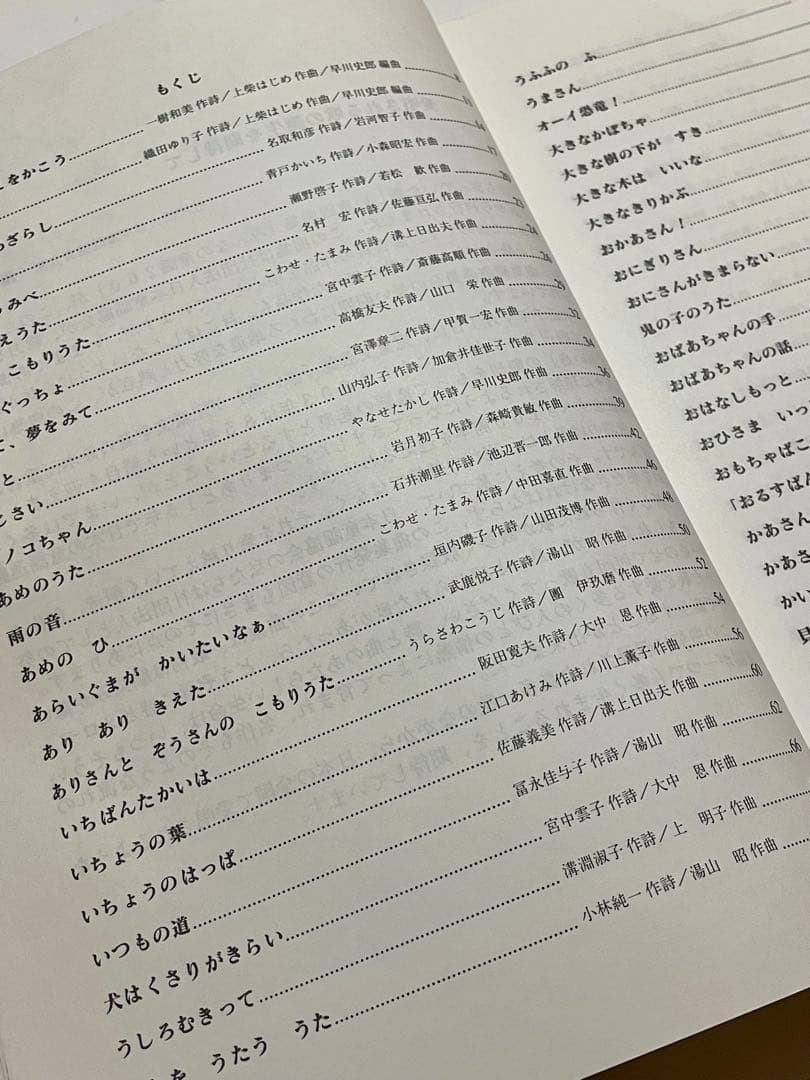 もくじ
をかこう……一樹和美 作詩／上柴はじめ 作曲／早川史郎 編曲……8
織田ゆり子 作詩／上柴はじめ 作曲／早川史郎 編曲……11
ざらし……名取和彦 作詩／岩河智子 作曲……14
青戸かいち 作詩／小森昭宏 作曲……17
みべ……瀬野啓子 作詩／若松　歓 作曲……20
えうた……名村　宏 作詩／佐藤亘弘 作曲……23
こもりうた……こわせ・たまみ 作詩／溝上日出夫 作曲……24
ぐっちょ……宮中雲子 作詩／斎藤高順 作曲……26
、夢をみて……高橋友夫 作詩／山口　栄 作曲……29
と……宮澤章二 作詩／甲賀一宏 作曲……32
さい……山内弘子 作詩／加倉井佳世子 作曲……34
ノコちゃん……やなせたかし 作詩／早川史郎 作曲……36
あめのうた……岩月初子 作詩／森崎貴敏 作曲……39
雨の音……石井潮里 作詩／池辺晋一郎 作曲……42
あめの　ひ……こわせ・たまみ 作詩／中田喜直 作曲……46
あらいぐまが　かいたいなぁ……垣内磯子 作詩／山田茂博 作曲……48
あり　あり　きえた……武鹿悦子 作詩／湯山　昭 作曲……50
ありさんと　ぞうさんの　こもりうた……うらさわこうじ 作詩／團　伊玖磨 作曲……52
いちばんたかいは……阪田寛夫 作詩／大中　恩 作曲……54
いちょうの葉……江口あけみ 作詩／川上薫子 作曲……56
いちょうのはっぱ……佐藤義美 作詩／溝上日出夫 作曲……60
いつもの道……冨永佳与子 作詩／湯山　昭 作曲……62
犬はくさりがきらい……宮中雲子 作詩／大中　恩 作曲……66
うしろむきって……溝淵淑子 作詩／上　明子 作曲……
を　うたう　うた……小林純一 作詩／湯山　昭 作曲……
うふふの　ふ……
うまさん……
オーイ恐竜！……
大きなかぼちゃ……
大きな樹の下が　すき……
大きな木は　いいな……
大きなきりかぶ……
おかあさん！……
おにぎりさん……
おにさんがきまらない……
鬼の子のうた……
おばあちゃんの手……
おばあちゃんの話……
おはなしもっと……
おひさま　いっ
おもちゃばこ
「おるすばん
かあさん
かあさ
かい